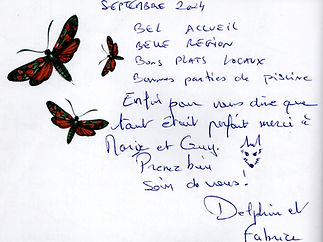 SEPTEMBRE 2014
BEL ACCUEIL
BELLE REGION
BONS PLATS LOCAUX
Bonnes parties de piscine
Enfin pour vous dire que
tout était parfait merci à
Marie et Guy.
Prenez bien
Soin de vous!
Delphine et
Fabrice